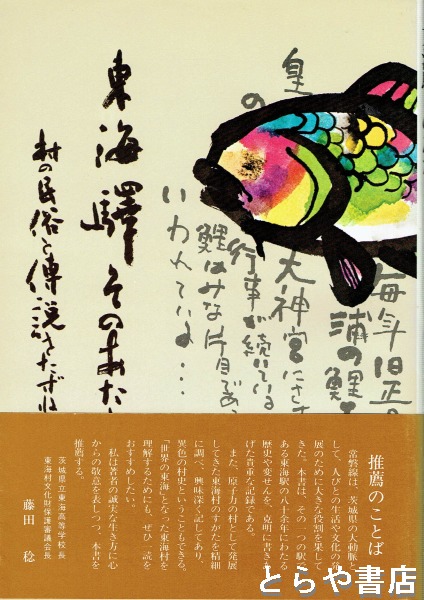 東海驛そのあた
村の民俗と傳説をたずね
皇
の
大神宮にさ
毎年旧正
浦の鯉
行事が続いている
鯉はみな片目であ
いわれている…
推薦のことば
常磐線は、茨城県の大動脈と
して、人びとの生活や文化の発
展のために大きな役割を果して
きた。本書は、その一つの駅で
ある東海駅の八十余年にわたる
歴史や変せんを、克明に書きあ
げた貴重な記録である。
また、原子力の村として発展
してきた東海村のすがたを精細
に調べ、興味深く記してあり、
異色の村史ということもできる。
「世界の東海」となった東海村を
理解するためにも、ぜひ一読を
おすすめしたい。
私は著者の誠実な生き方に心
からの敬意を表しつつ、本書を
推薦する。
茨城県立東海高等学校長
東海村文化財保護審議会長
藤田 稔
とらや書店